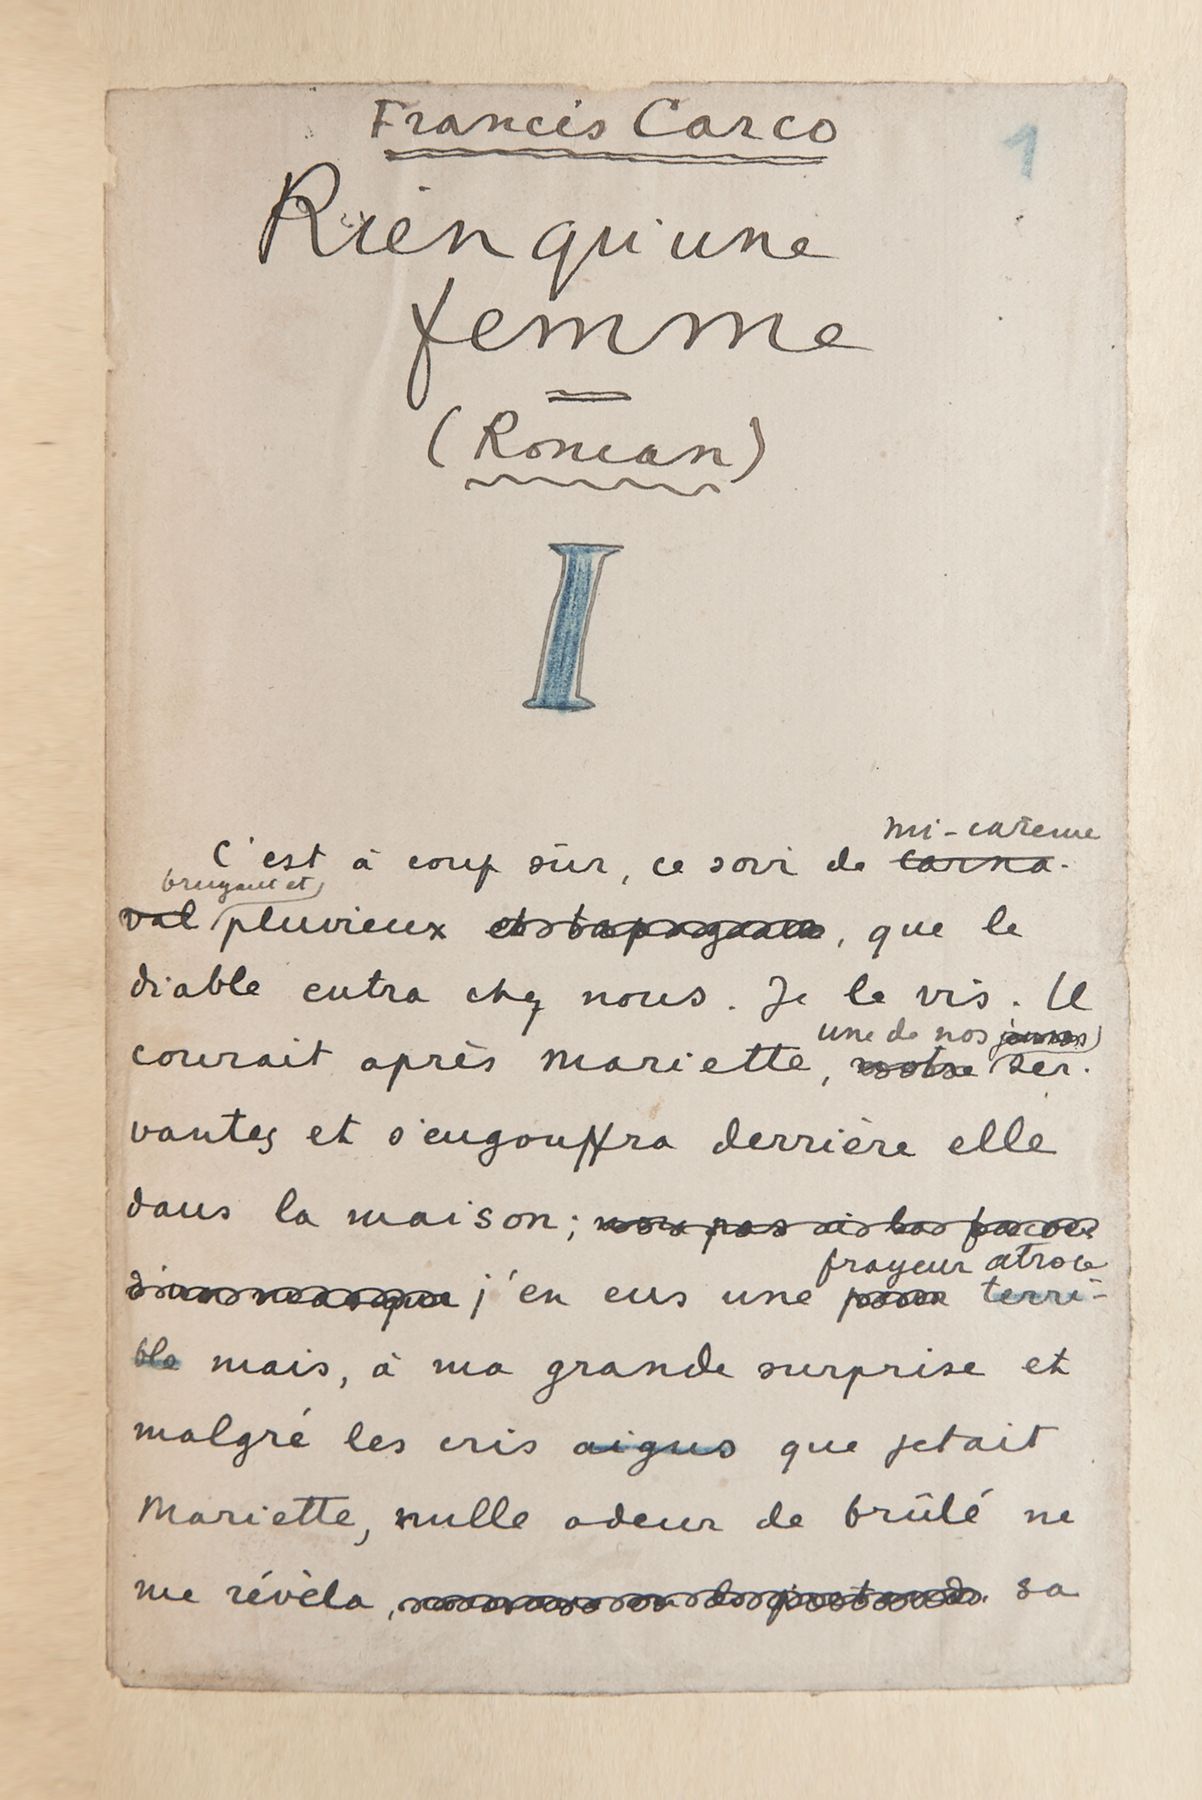 Francis Carco
1
Rien qu'une
femme
(Roman)
I
mi-carême
C'est à coup sûr, ce soir de carna-
bruyant et
val pluvieux et tapageur, que le
diable entra chez nous. Je le vis. Il
une de nos jeunes
courait après Mariette, notre ser-
vantes et s'engouffra derrière elle
dans la maison;
frayeur atroce
d'un masque j'en eus une peur terri-
ble mais, à ma grande surprise et
malgré les cris aigus que jetait
Mariette, nulle odeur de brûlé ne
me révéla, sa